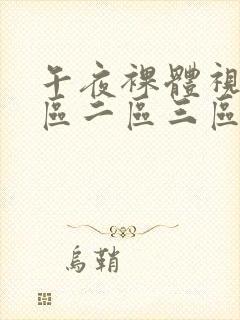 午夜裸體視
區二區三區
烏鞘